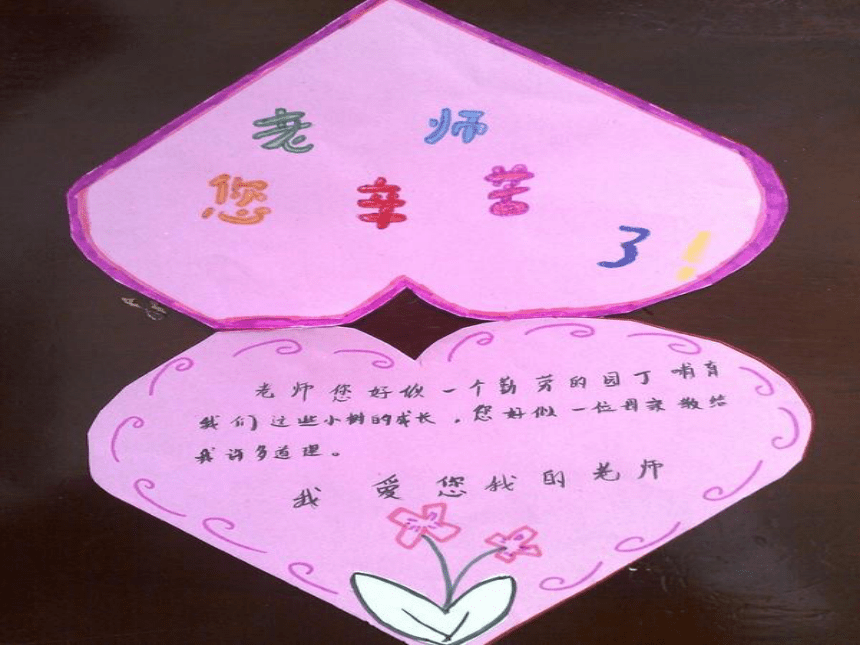 老师
您辛苦
了！
老师您好像一个勤劳的园丁哺育
我们这些小树的成长，您好像一位母亲教给
我许多道理。
我爱您我的老师